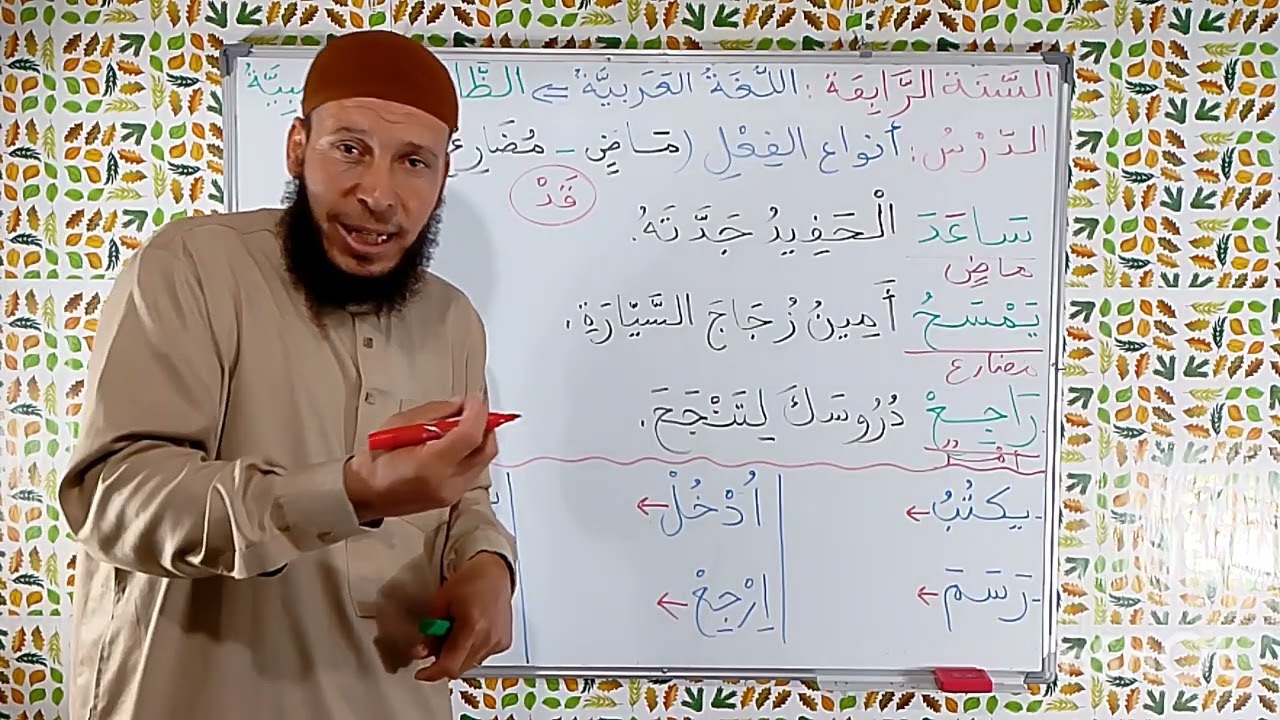 السَّنَة الرَّابِعَة : اللُّغَةُ العَرَبِيَّة ⇐
الدَّرْسُ: أنواع الفِعْلِ (مَاضٍ - مُضَارِع
قَدْ
سَاعَدَ الْحَفِيدُ جَدَّتَهُ.
ماضٍ
يَمْسَحُ أَمِينُ زُجَاجَ السَّيَّارَةِ.
مضارع
رَاجِعْ دُرُوسَكَ لِتَنْجَحَ.
أمْرٌ
- يكتُبُ ← اُدْخُلْ ←
- رَسَمَ ← اِرْجِعْ ←